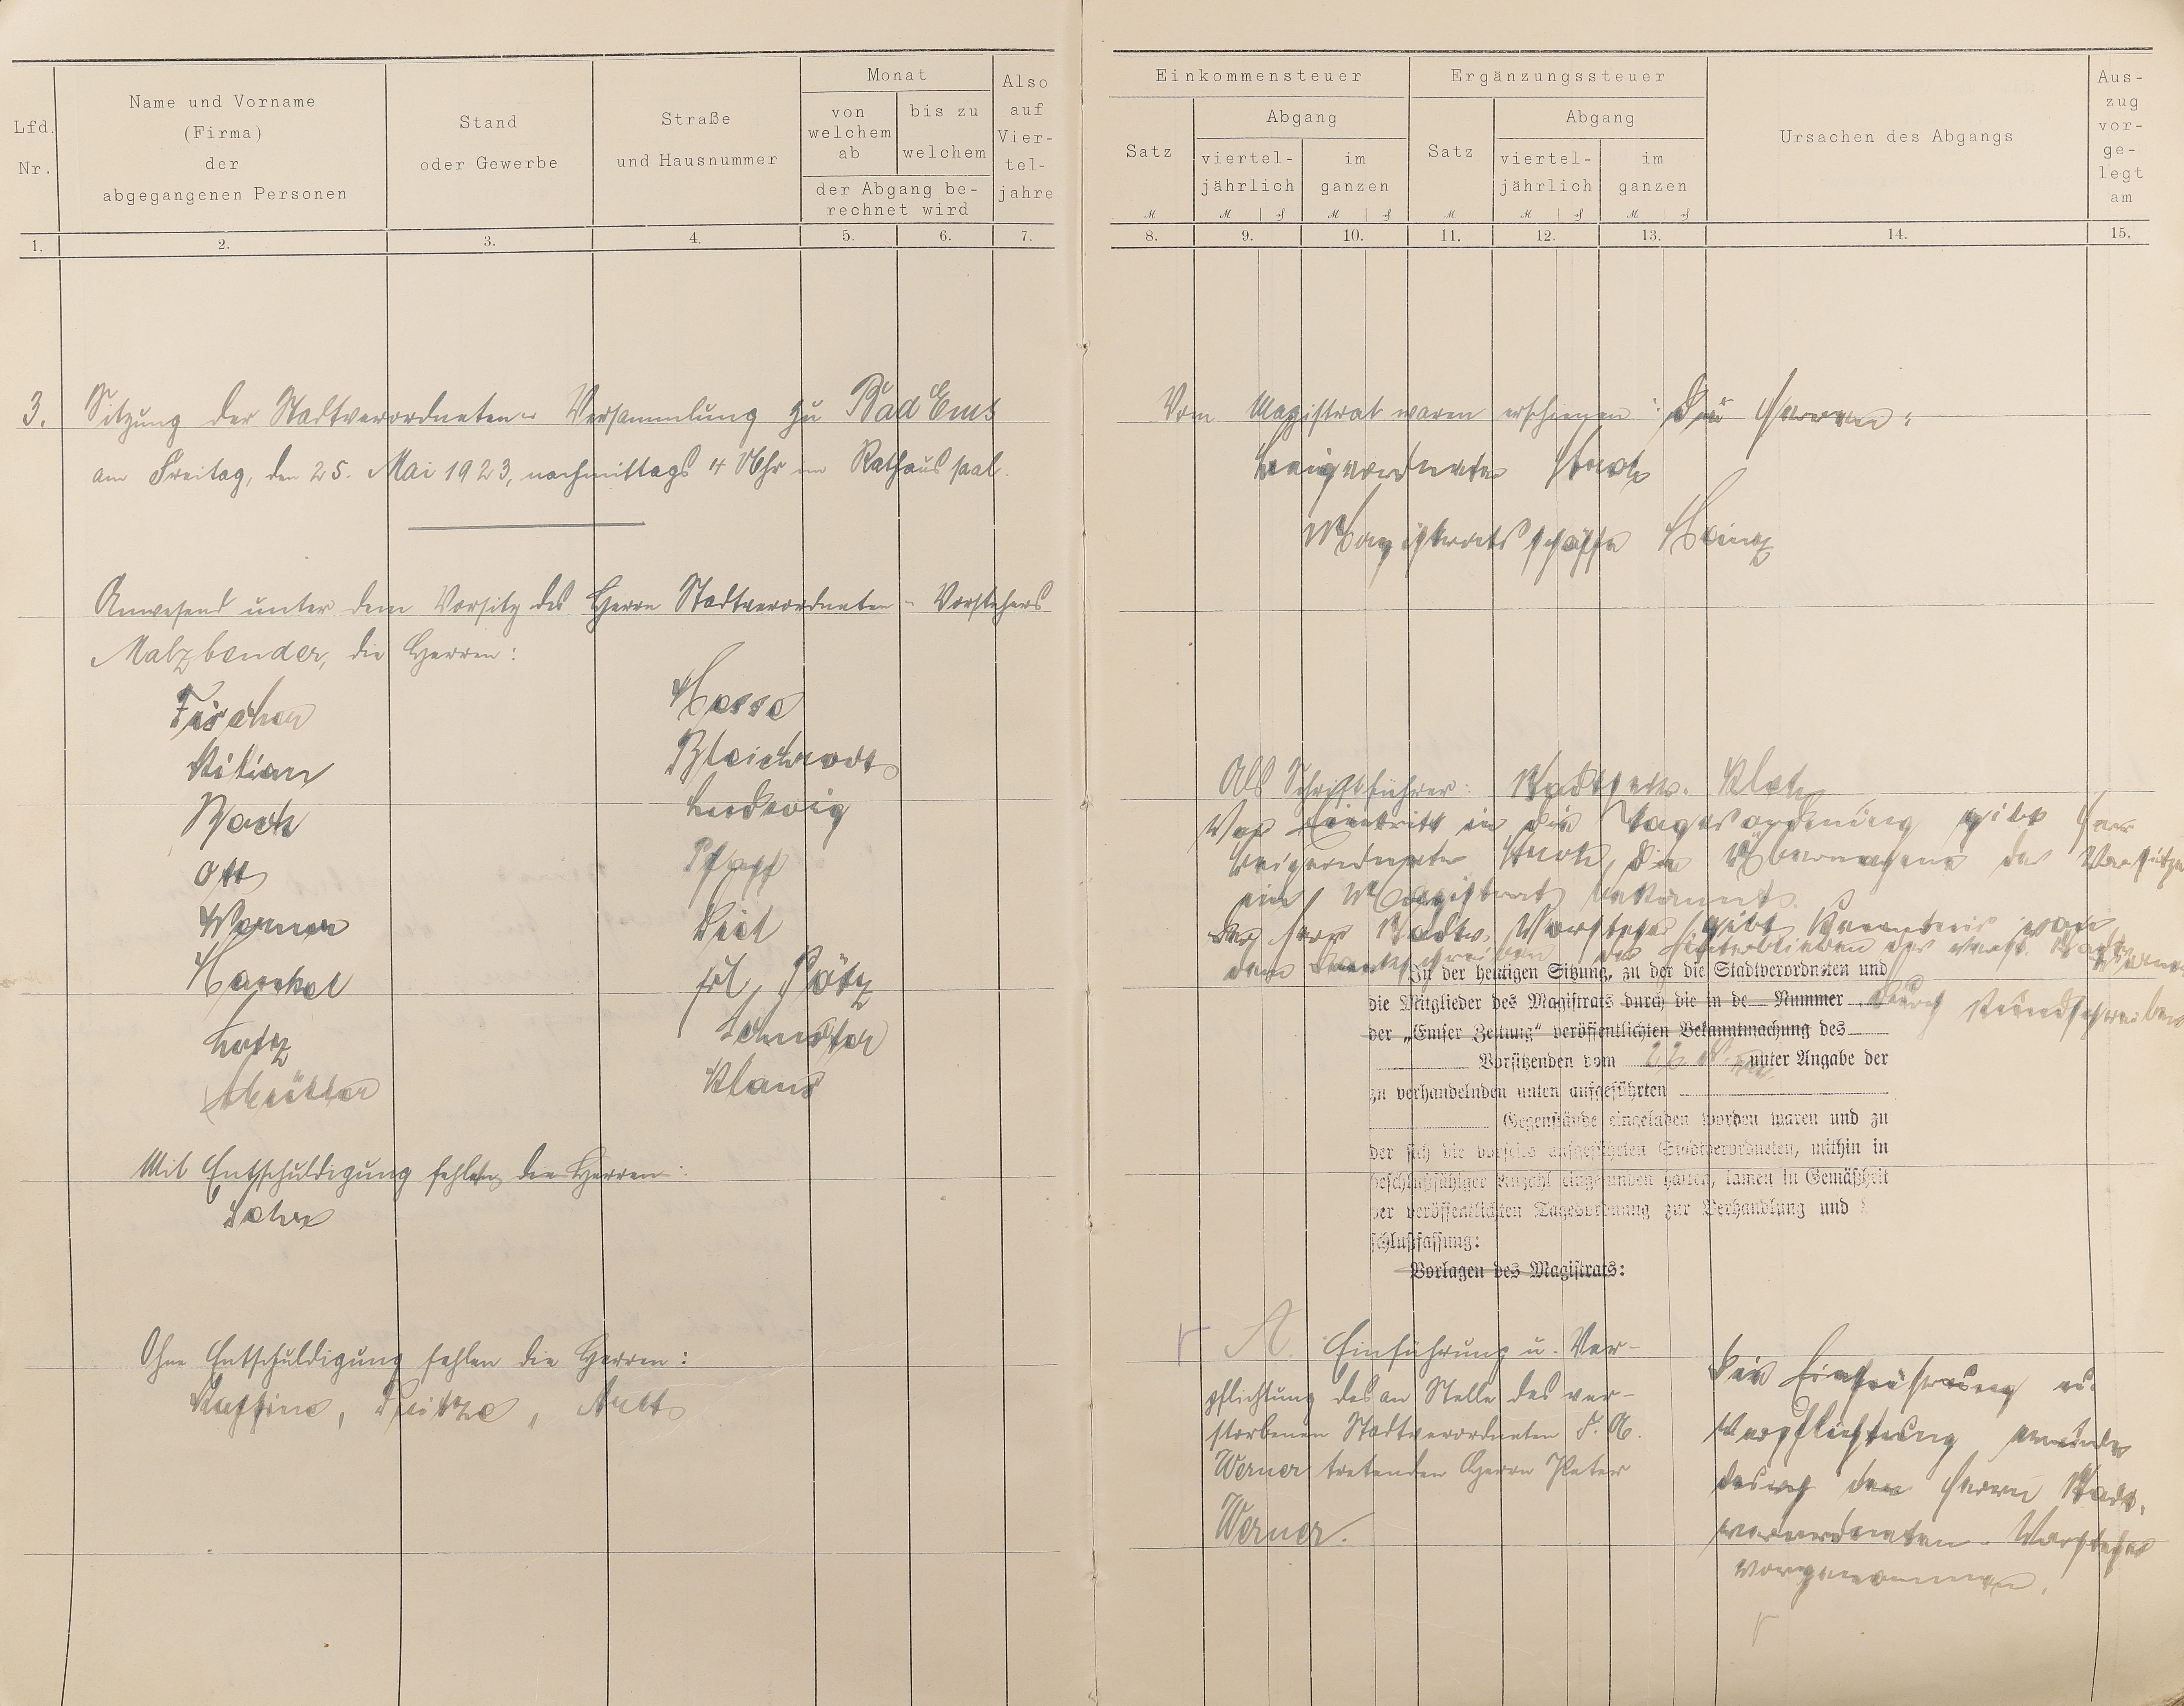 Lfd. Nr.
Name und Vorname
(Firma)
der
abgegangenen Personen
Stand
oder Gewerbe
Straße
und Hausnummer
Monat
von welchem ab
bis zu welchem
der Abgang be-
rechnet wird
Also auf Vier-tel-jahre
1. 2. 3. 4. 5. 6. 7.
3. Sitzung der Stadtverordneten-Versammlung zu Bad Ems
am Freitag, den 25. Mai 1923, nachmittags 4 Uhr im Rathaussaal.
Anwesend unter dem Vorsitz des Herrn Stadtverordneten-Vorstehers
Malzbender, die Herren:
Fischer
Kilian
Bach
Ott
Werner
Henkel
Lotz
Müller
Hesse
Ludwig
Pfaff
Frl. Pötz
Schuster
Klaus
Mit Entschuldigung fehlen die Herren:
Ohne Entschuldigung fehlen die Herren:
Einkommensteuer
Satz
Abgang
viertel-
jährlich
im
ganzen
Ergänzungssteuer
Satz
Abgang
viertel-
jährlich
im
ganzen
Ursachen des Abgangs
Aus-
zug
vor-
ge-
legt
am
8. 9. 10. 11. 12. 13. 14. 15.
Vom Magistrat waren erschienen: Die Herren:
Beigeordneter
Magistratsschöffe
Als Schriftführer:
Vor Eintritt in die Tagesordnung gibt Herr
Beigeordneter die Übernahme des
im Magistrat bekannt.
Der Herr Stadtv. Vorsteher gibt Kenntnis von
dem Dankschreiben der Hinterbliebenen des verst.
In der heutigen Sitzung, zu der die Stadtverordneten und
die Mitglieder des Magistrats durch die in de Nummer durch Rundschreiben
der „Emser Zeitung“ veröffentlichten Bekanntmachung des
Vorsitzenden vom 22. unter Angabe der
zu verhandelnden unten aufgeführten
Gegenstände eingeladen worden waren und zu
der sich die vorseits aufgeführten Stadtverordneten, mithin in
beschlußfähiger Anzahl eingefunden hatten, kamen in Gemäßheit
der veröffentlichten Tagesordnung zur Verhandlung und
schlußfassung:
Vorlagen des Magistrats:
A. Einführung u. Ver-
pflichtung des an Stelle des ver-
storbenen Stadtverordneten F. A.
Werner tretenden Herrn Peter
Werner.
Die Einführung u.
Verpflichtung wurde
durch den Herrn Stadt-
verordneten-Vorsteher
vorgenommen.